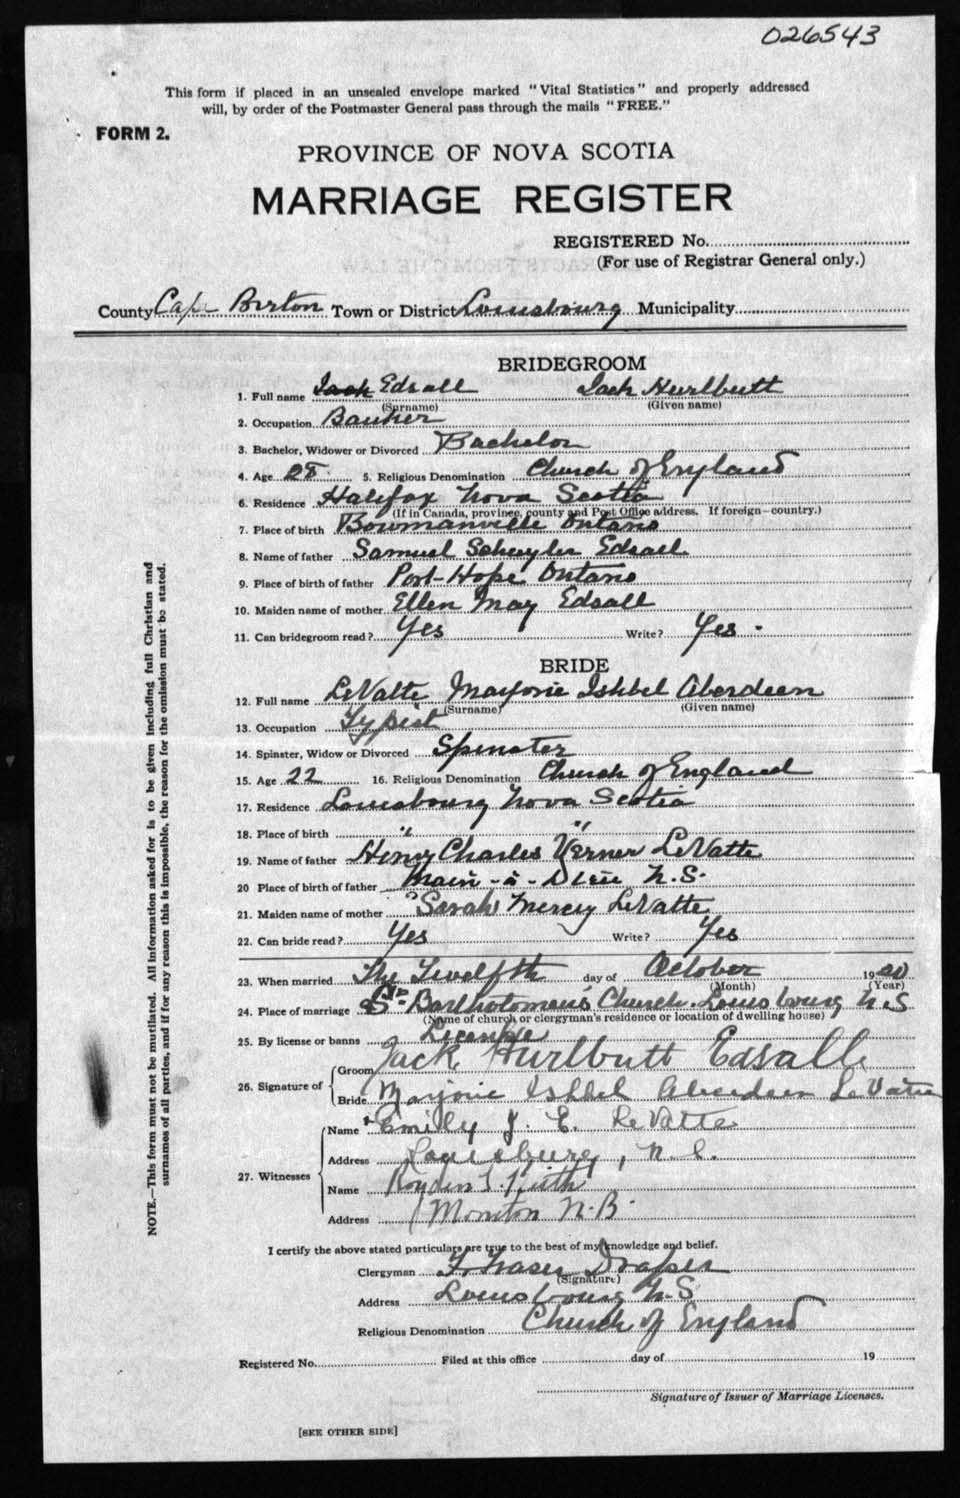 026543
This form if placed in an unsealed envelope marked "Vital Statistics" and properly addressed
will, by order of the Postmaster General pass through the mails "FREE."
FORM 2.
PROVINCE OF NOVA SCOTIA
MARRIAGE REGISTER
REGISTERED No.
(For use of Registrar General only.)
County Cape Breton Town or District Louisbourg Municipality
BRIDEGROOM
1. Full name Jack Edsall Jack Hurlbutt
(Surname) (Given name)
2. Occupation Banker
3. Bachelor, Widower or Divorced Bachelor
4. Age 28. 5. Religious Denomination Church of England
6. Residence Halifax Nova Scotia
(If in Canada, province, county and Post Office address. If foreign—country.)
7. Place of birth Bowmanville Ontario
8. Name of father Samuel Schuyler Edsall
9. Place of birth of father Port-Hope Ontario
10. Maiden name of mother Ellen May Edsall
11. Can bridegroom read? Yes Write? Yes.
BRIDE
12. Full name LeVatte Marjorie Ishbel Aberdeen
(Surname) (Given name)
13. Occupation Typist
14. Spinster, Widow or Divorced Spinster
15. Age 22 16. Religious Denomination Church of England
17. Residence Louisbourg Nova Scotia
18. Place of birth " "
19. Name of father Henry Charles Verner LeVatte
20 Place of birth of father Main-à-Dieu N.S.
21. Maiden name of mother Sarah Mercy LeVatte
22. Can bride read? Yes Write? Yes
23. When married The Twelfth day of October 1920
(Month) (Year)
24. Place of marriage St. Bartholomew's Church. Louisbourg N.S
(Name of church or clergyman's residence or location of dwelling house)
25. By license or banns License
26. Signature of Groom Jack Hurlbutt Edsall
Bride Marjorie Ishbel Aberdeen LeVatte
27. Witnesses Name Emily J. E. LeVatte
Address Louisburg, N.S.
Name
Address Moncton N.B.
I certify the above stated particulars are true to the best of my knowledge and belief.
Clergyman T. Fraser Draper
(Signature)
Address Louisbourg N.S
Religious Denomination Church of England
Registered No. Filed at this office day of 19
Signature of Issuer of Marriage Licenses.
[SEE OTHER SIDE]
NOTE.—This form must not be mutilated. All information asked for is to be given including full Christian and
surnames of all parties, and if for any reason this is impossible, the reason for the omission must be stated.